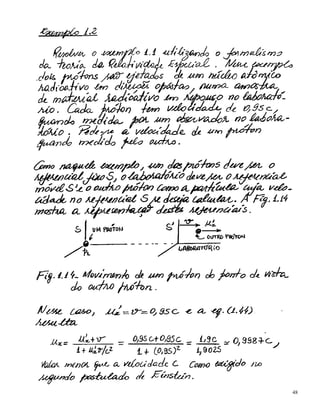 Exemplo 1.2
Resolver o exemplo 1.1 utilizando o formalismo
da Teoria da Relatividade Especial. Nesse exemplo
dois prótons são ejetados de um núcleo atômico
radioativo em direções opostas, numa amostra
de material radioativo em repouso no laborató-
rio. Cada próton tem velocidade de 0,95c,
quando medida por um observador no labora-
tório. Pede-se a velocidade de um próton
quando medido pelo outro.
Como naquele exemplo, um dos prótons deve ser o
referencial fixo S, o laboratório deve ser o referencial
móvel S' e o outro próton como a partícula cuja velo-
cidade no referencial S se deseja calcular. A Fig. 1.14
mostra a representação destes referenciais.
S UM PRÓTON S' v u'x OUTRO PRÓTON
LABORATÓRIO
Fig. 1.14- Movimento de um próton do ponto de vista
do outro próton.
Nesse caso, u'x = v = 0,95c e a eq. (1.44)
resulta
ux = u'x + v / 1 + u'x v/c² = 0,95c + 0,95c / 1 + (0,95)² = 1,9c / 1,9025 ≈ 0,998+c,
valor menor que a velocidade c como exigido no
segundo postulado de Einstein.
48